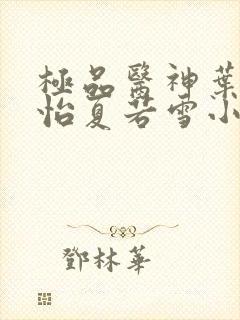 極品醫神葉
怡夏若雪小
鄧林華